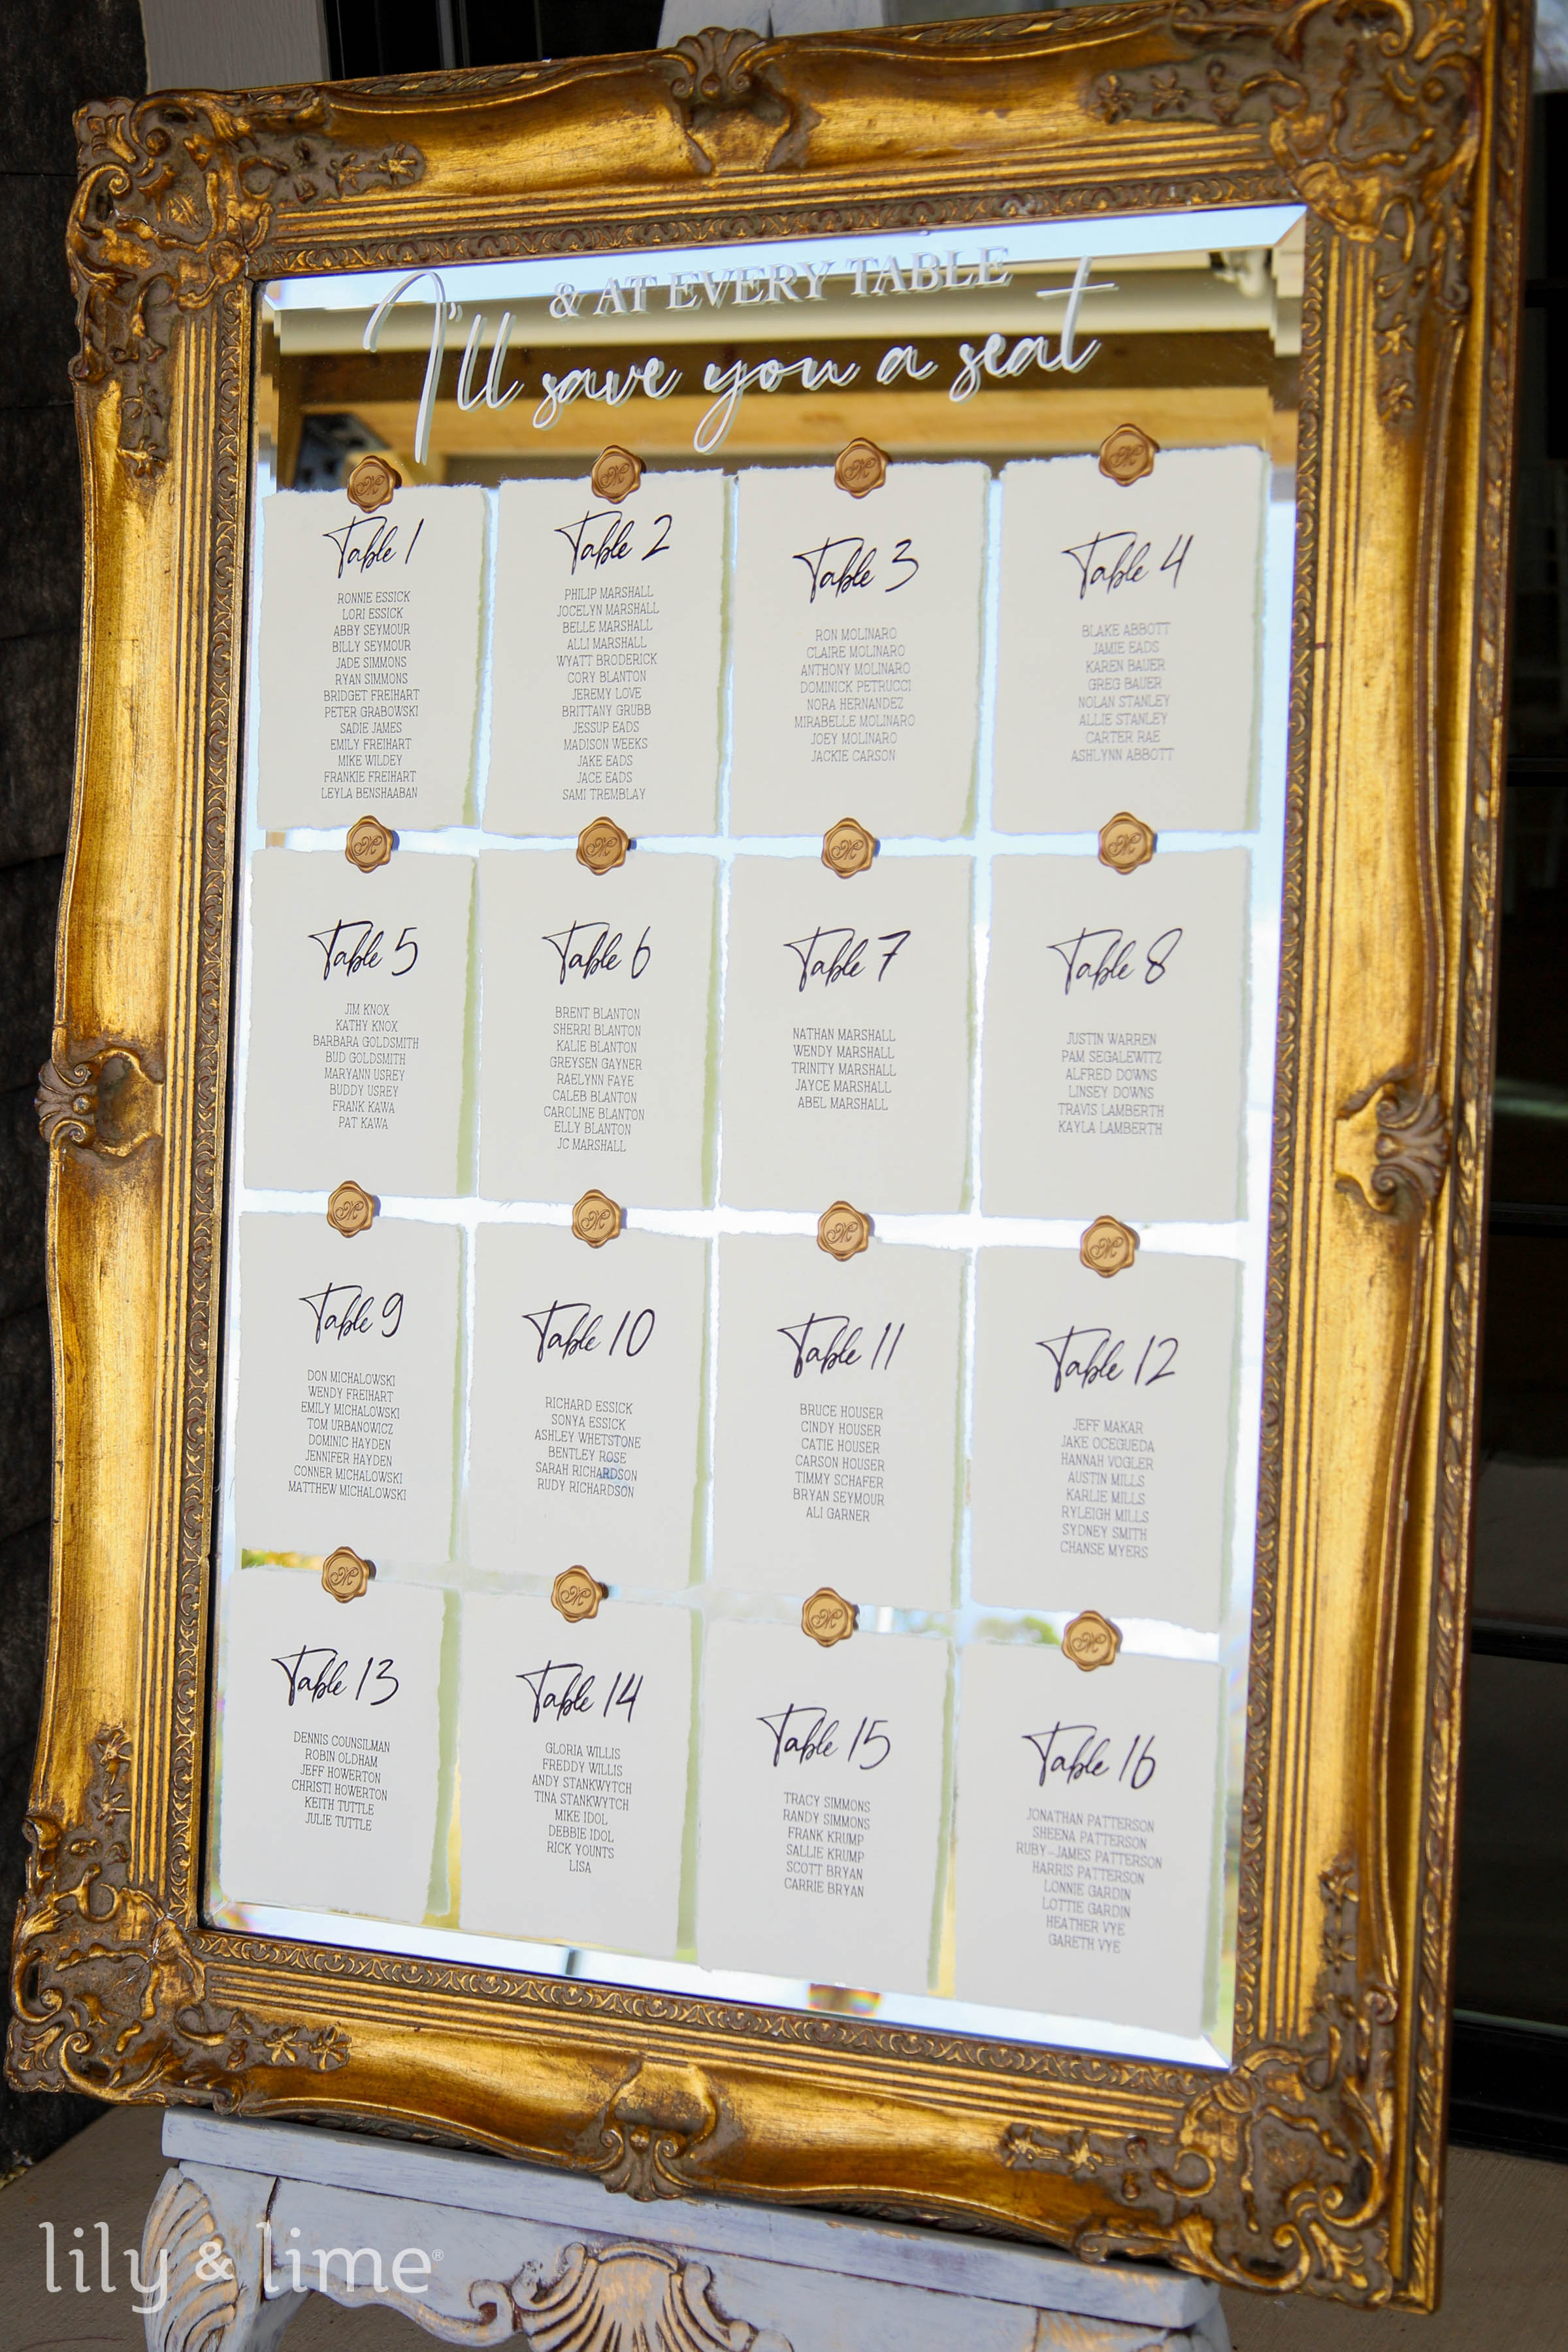 & AT EVERY TABLE
I'll save you a seat
Table 1
RONNIE ESSICK
LORI ESSICK
ABBY SEYMOUR
BILLY SEYMOUR
JADE SIMMONS
RYAN SIMMONS
BRIDGET FREIHART
PETER GRABOWSKI
SADIE JAMES
EMILY FREIHART
MIKE WILDEY
FRANKIE FREIHART
LEYLA BENSHAABAN
Table 2
PHILIP MARSHALL
JOCELYN MARSHALL
BELLE MARSHALL
ALLI MARSHALL
WYATT BRODERICK
CORY BLANTON
JEREMY LOVE
BRITTANY GRUBB
JESSUP EADS
MADISON WEEKS
JAKE EADS
JACE EADS
SAMI TREMBLAY
Table 3
RON MOLINARO
CLAIRE MOLINARO
ANTHONY MOLINARO
DOMINICK PETRUCCI
NORA HERNANDEZ
MIRABELLE MOLINARO
JOEY MOLINARO
JACKIE CARSON
Table 4
BLAKE ABBOTT
JAMIE EADS
KAREN BAUER
GREG BAUER
NOLAN STANLEY
ALLIE STANLEY
CARTER RAE
ASHLYNN ABBOTT
Table 5
JIM KNOX
KATHY KNOX
BARBARA GOLDSMITH
BUD GOLDSMITH
MARYANN USREY
BUDDY USREY
FRANK KAWA
PAT KAWA
Table 6
BRENT BLANTON
SHERRI BLANTON
KALIE BLANTON
GREYSEN GAYNER
RAELYNN FAYE
CALEB BLANTON
CAROLINE BLANTON
ELLY BLANTON
JC MARSHALL
Table 7
NATHAN MARSHALL
WENDY MARSHALL
TRINITY MARSHALL
JAYCE MARSHALL
ABEL MARSHALL
Table 8
JUSTIN WARREN
PAM SEGALEWITZ
ALFRED DOWNS
LINSEY DOWNS
TRAVIS LAMBERTH
KAYLA LAMBERTH
Table 9
DON MICHALOWSKI
WENDY FREIHART
EMILY MICHALOWSKI
TOM URBANOWICZ
DOMINIC HAYDEN
JENNIFER HAYDEN
CONNER MICHALOWSKI
MATTHEW MICHALOWSKI
Table 10
RICHARD ESSICK
SONYA ESSICK
ASHLEY WHETSTONE
BENTLEY ROSE
SARAH RICHARDSON
RUDY RICHARDSON
Table 11
BRUCE HOUSER
CINDY HOUSER
CATIE HOUSER
CARSON HOUSER
TIMMY SCHAFER
BRYAN SEYMOUR
ALI GARNER
Table 12
JEFF MAKAR
JAKE OCEGUEDA
HANNAH VOGLER
AUSTIN MILLS
KARLIE MILLS
RYLEIGH MILLS
SYDNEY SMITH
CHANSE MYERS
Table 13
DENNIS COUNSILMAN
ROBIN OLDHAM
JEFF HOWERTON
CHRISTI HOWERTON
KEITH TUTTLE
JULIE TUTTLE
Table 14
GLORIA WILLIS
FREDDY WILLIS
ANDY STANKWYTCH
TINA STANKWYTCH
MIKE IDOL
DEBBIE IDOL
RICK YOUNTS
LISA
Table 15
TRACY SIMMONS
RANDY SIMMONS
FRANK KRUMP
SALLIE KRUMP
SCOTT BRYAN
CARRIE BRYAN
Table 16
JONATHAN PATTERSON
SHEENA PATTERSON
RUBY-JAMES PATTERSON
HARRIS PATTERSON
LONNIE GARDIN
LOTTIE GARDIN
HEATHER VYE
GARETH VYE
lily & lime®